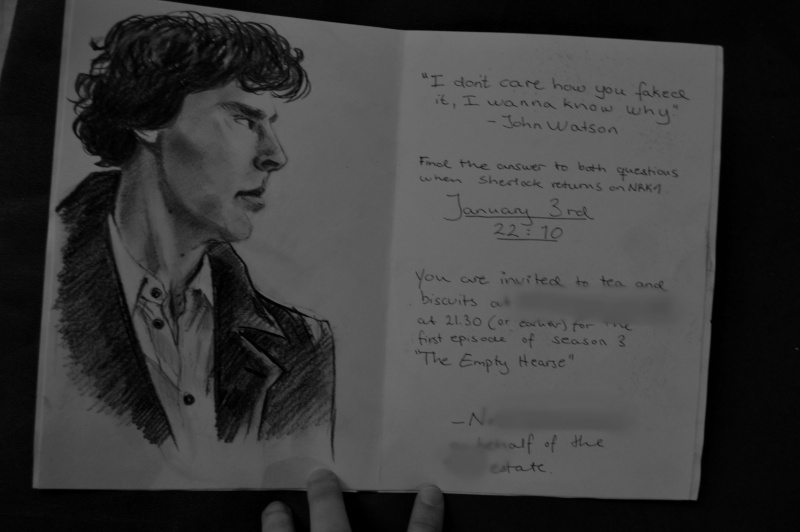 "I don't care how you faked
it, I wanna know why"
- John Watson
Find the answer to both questions
when Sherlock returns on NRK1
January 3rd
22:10
You are invited to tea and
biscuits at
at 21.30 (or earlier) for the
first episode of season 3
"The Empty Hearse"
- N
behalf of the
estate.